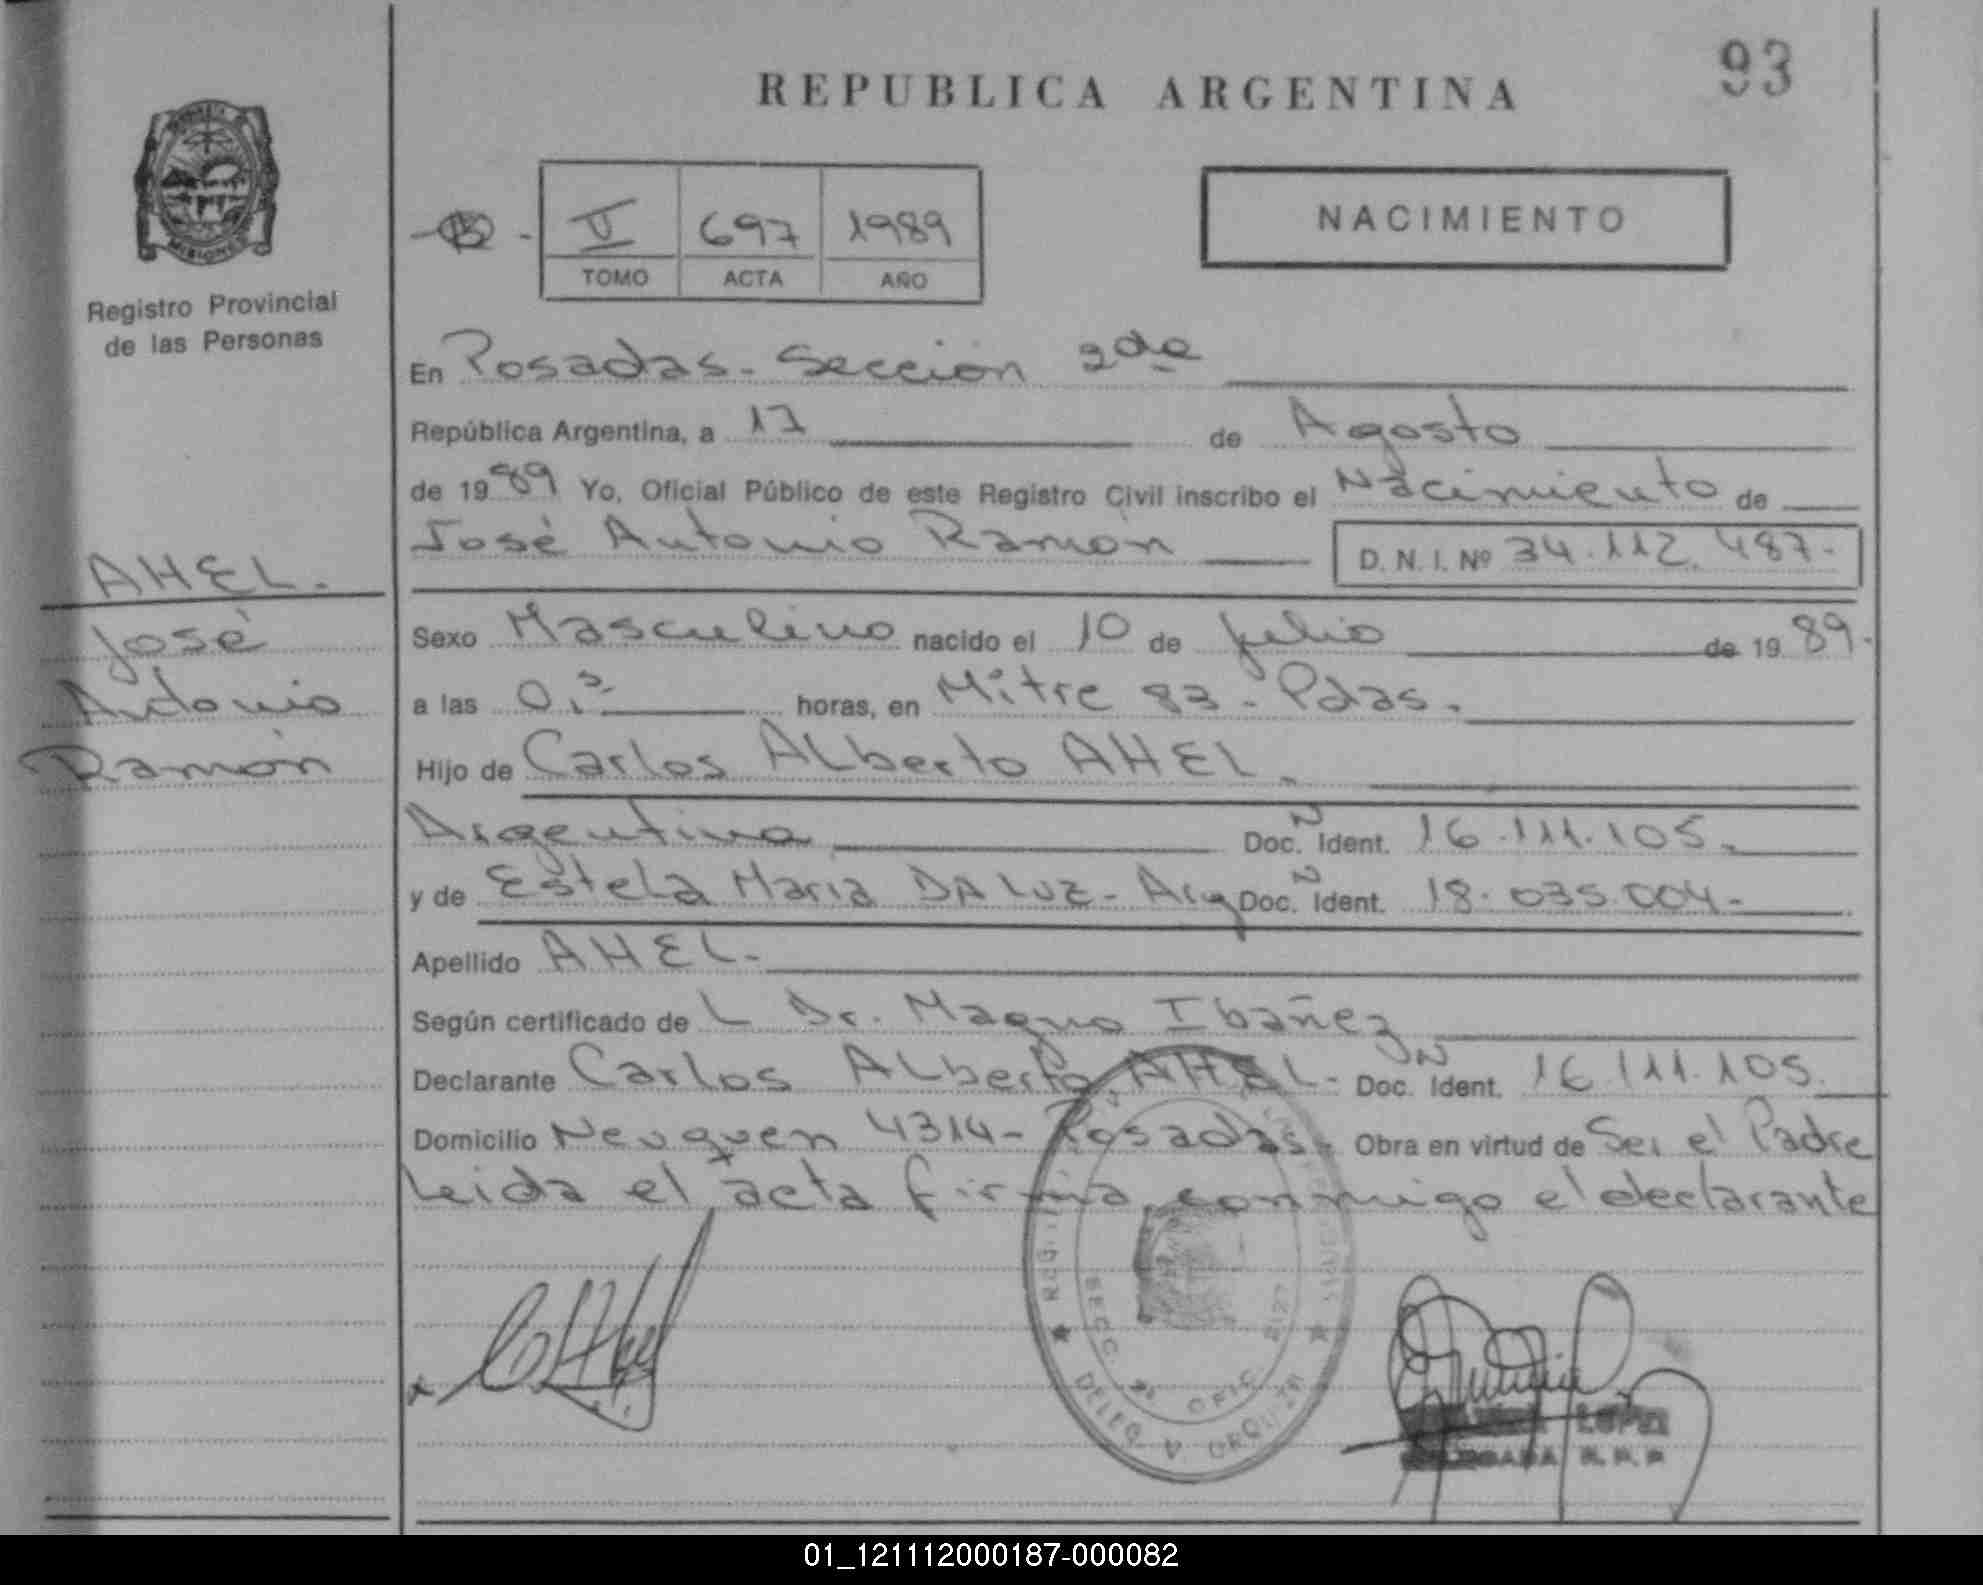 93
REPUBLICA ARGENTINA
MISIONES
Registro Provincial
de las Personas
II 697 1989
TOMO ACTA AÑO
NACIMIENTO
En Posadas - Sección 2da
República Argentina, a 17 de Agosto
de 1989 Yo, Oficial Público de este Registro Civil inscribo el Nacimiento de
José Antonio Ramón D. N. I. Nº 34.112.487.-
AHEL.
José
Antonio
Ramón
Sexo Masculino nacido el 10 de Julio de 1989.
a las 0,5 horas, en Mitre 83 - Pdas.
Hijo de Carlos Alberto AHEL.
Argentina Doc. N Ident. 16.111.105.
y de Estela Maria DA LUZ - Arg Doc. N Ident. 18.035.004.-
Apellido AHEL.-
Según certificado de L Dr. Magno Ibañez
Declarante Carlos Alberto AHEL.- Doc. N Ident. 16.111.105.
Domicilio Neuquen 4314 - Posadas.- Obra en virtud de Ser el Padre
Leida el acta firma conmigo el declarante
SECC. 2ª OFIC.
DELEG. V. URQUIZA
LOPEZ
R. P. P.
01_121112000187-000082